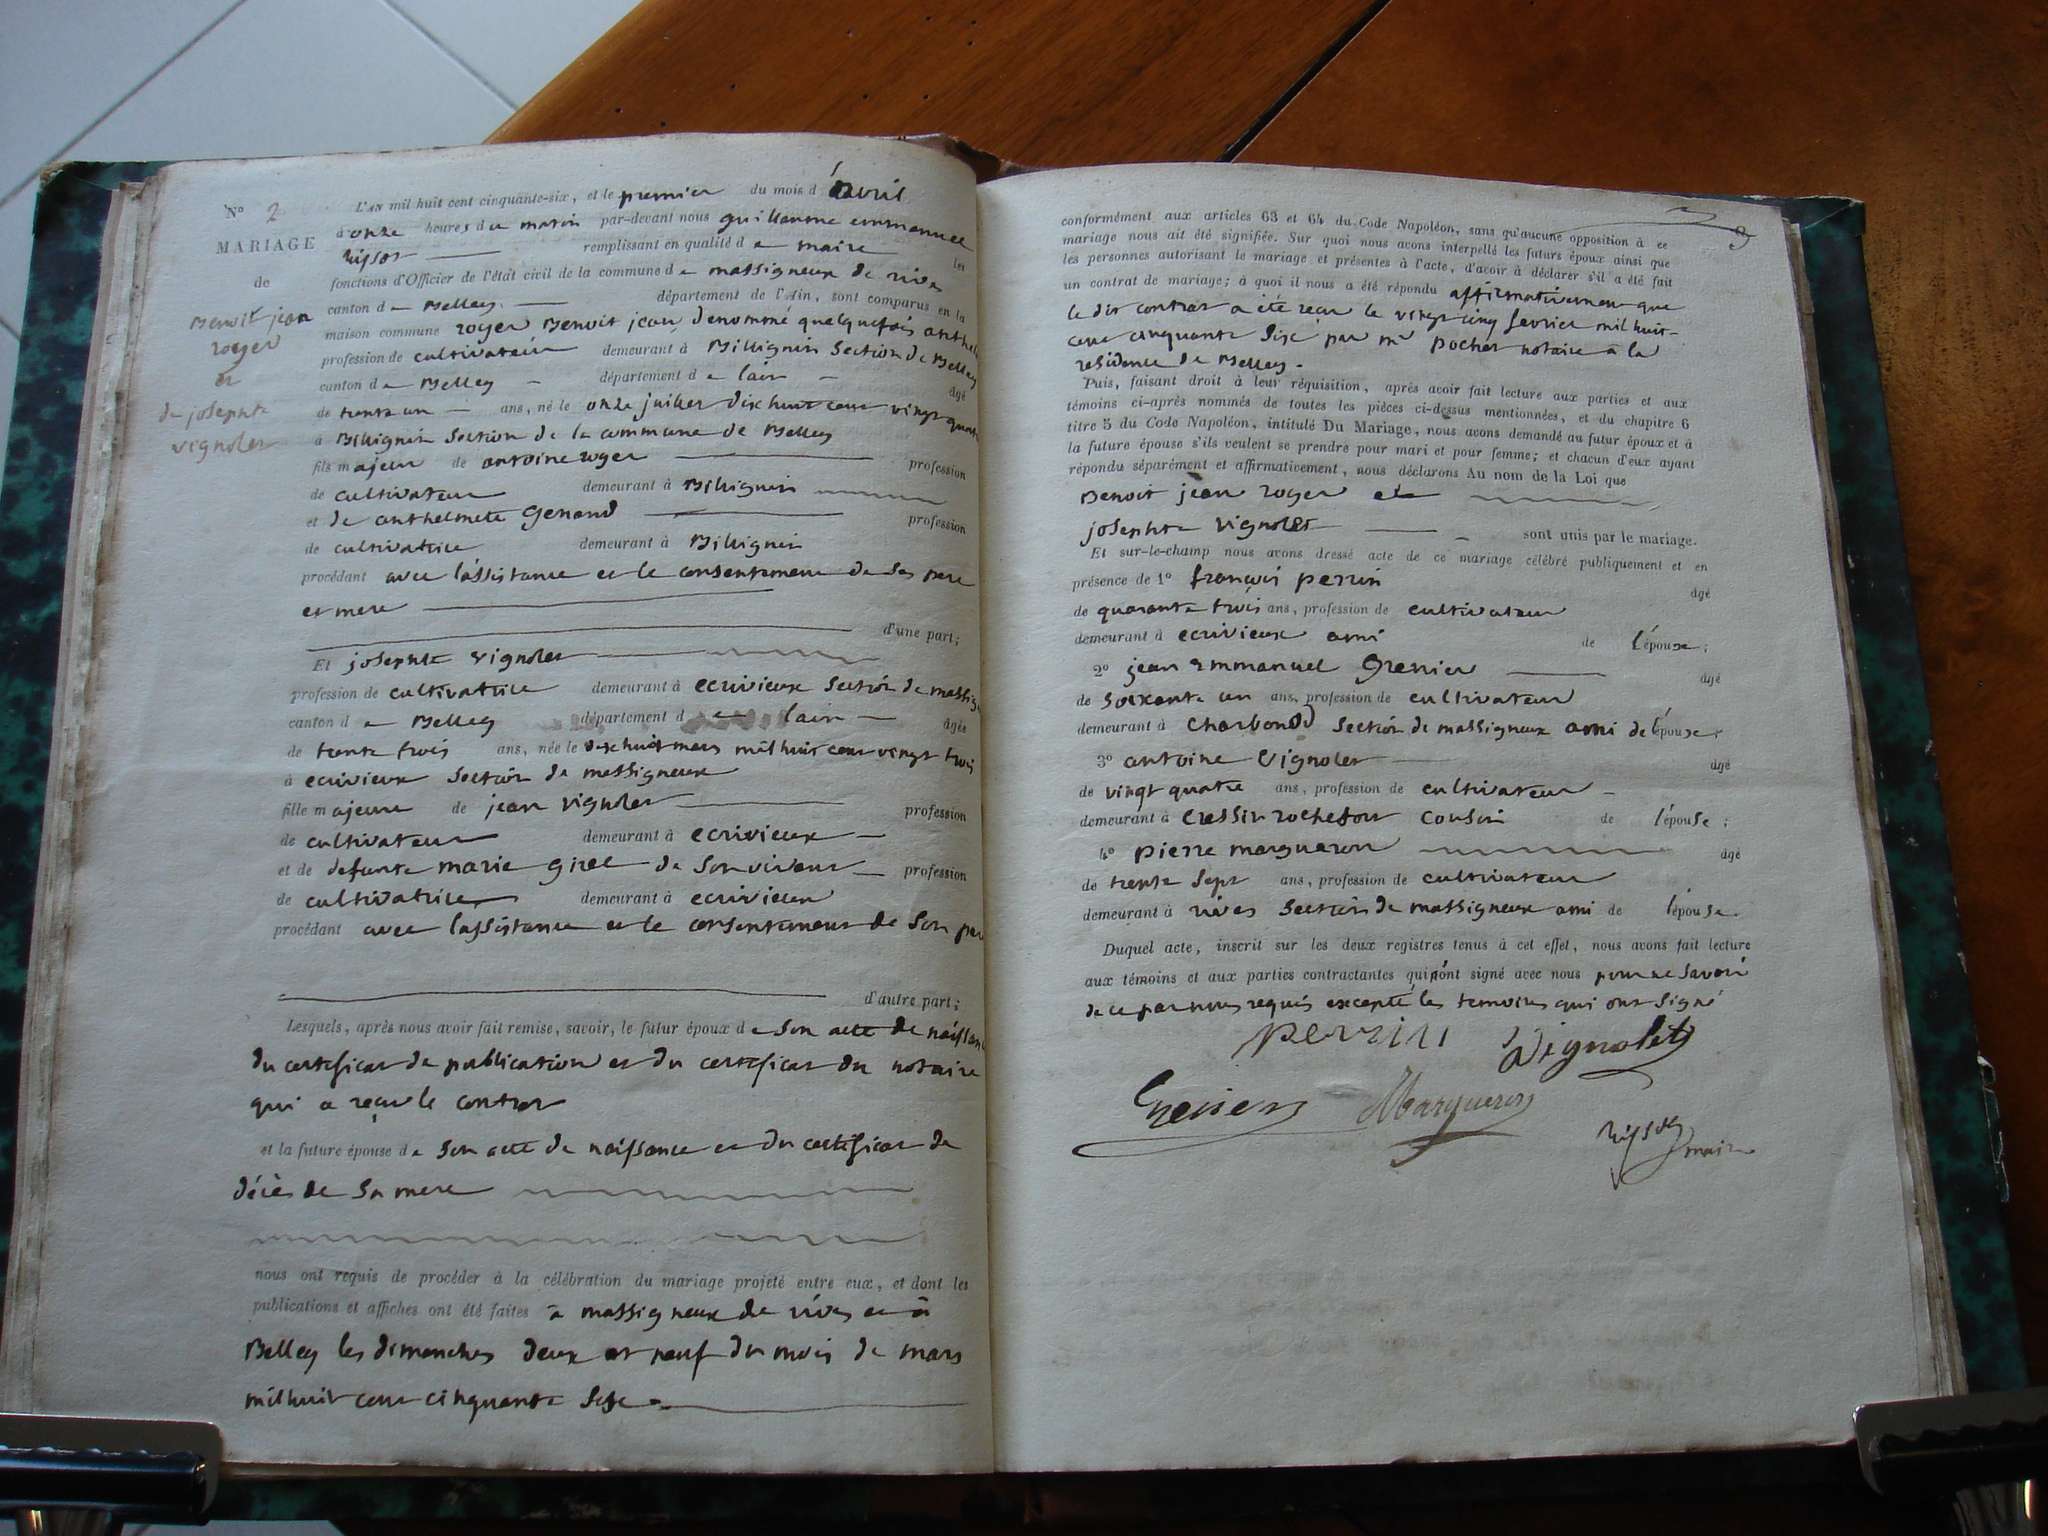 N° 2
MARIAGE
de
Benoit jean
roger
et
de josephte
vignolet
L'AN mil huit cent cinquante-six, et le premier du mois d'avril
à onze heures du matin par-devant nous guillaume emmanuel
remplissant en qualité de maire les
fonctions d'Officier de l'état civil de la commune de massigneux de rives
canton de Belley département de l'Ain, sont comparus en la
maison commune roger Benoit jean denommé quelquefois anthel
profession de cultivateur demeurant à Billignin Section de Belley
canton de Belley département de lain âgé
de trente un ans, né le onze juillet dix huit cent vingt quat
à Billignin Section de la commune de Belley
fils majeur de antoine roger profession
de cultivateur demeurant à Billignin
et de anthelmete Genand profession
de cultivatrice demeurant à Billignin
procédant avec lassistance et le consentement de Ses pere
et mere
d'une part;
Et josephte vignolet
profession de cultivatrice demeurant à ecrivieux Section de massig
canton de Belley département de lain âgée
de trente trois ans, née le dix huit mars mil huit cent vingt trois
à ecrivieux Section de massigneux
fille majeure de jean vignolet profession
de cultivateur demeurant à ecrivieux
et de defunte marie girel de Son vivant profession
de cultivatrice demeurant à ecrivieux
procédant avec lassistance et le consentement de Son pere
d'autre part;
Lesquels, après nous avoir fait remise, savoir, le futur époux de Son acte de naissance
du certificat de publication et du certificat du notaire
qui a reçu le contrat
et la future épouse de Son acte de naissance et du certificat de
décès de Sa mere
nous ont requis de procéder à la célébration du mariage projeté entre eux, et dont les
publications et affiches ont été faites à massigneux de rives et à
Belley les dimanches deux et neuf du mois de mars
mil huit cent cinquante Six
conformément aux articles 63 et 64 du Code Napoléon, sans qu'aucune opposition à ce
mariage nous ait été signifiée. Sur quoi nous avons interpellé les futurs époux ainsi que
les personnes autorisant le mariage et présentes à l'acte, d'avoir à déclarer s'il a été fait
un contrat de mariage; à quoi il nous a été répondu affirmativement que
le dit contrat a été reçu le vingt cinq fevrier mil huit
cent cinquante Six par me pochet notaire à la
residence de Belley.
Puis, faisant droit à leur réquisition, après avoir fait lecture aux parties et aux
témoins ci-après nommés de toutes les pièces ci-dessus mentionnées, et du chapitre 6
titre 5 du Code Napoléon, intitulé Du Mariage, nous avons demandé au futur époux et à
la future épouse s'ils veulent se prendre pour mari et pour femme; et chacun d'eux ayant
répondu séparément et affirmativement, nous déclarons Au nom de la Loi que
Benoit jean roger et
josephte vignolet sont unis par le mariage.
Et sur-le-champ nous avons dressé acte de ce mariage célébré publiquement et en
présence de 1° françois perrin âgé
de quarante trois ans, profession de cultivateur
demeurant à ecrivieux ami de l'épouse;
2° jean emmanuel Grenier âgé
de Soixante un ans, profession de cultivateur
demeurant à Charbonod Section de massigneux ami de l'épouse;
3° antoine Vignolet âgé
de vingt quatre ans, profession de cultivateur
demeurant à Cressin rochefort Cousin de l'épouse;
4° pierre margueron âgé
de trente Sept ans, profession de cultivateur
demeurant à rives Section de massigneux ami de l'épouse.
Duquel acte, inscrit sur les deux registres tenus à cet effet, nous avons fait lecture
aux témoins et aux parties contractantes qui n'ont signé avec nous pour ne Savoir
de ce par nous requis excepté les temoins qui ont Signé
Perrin Vignolet
Grenier Margueron
maire